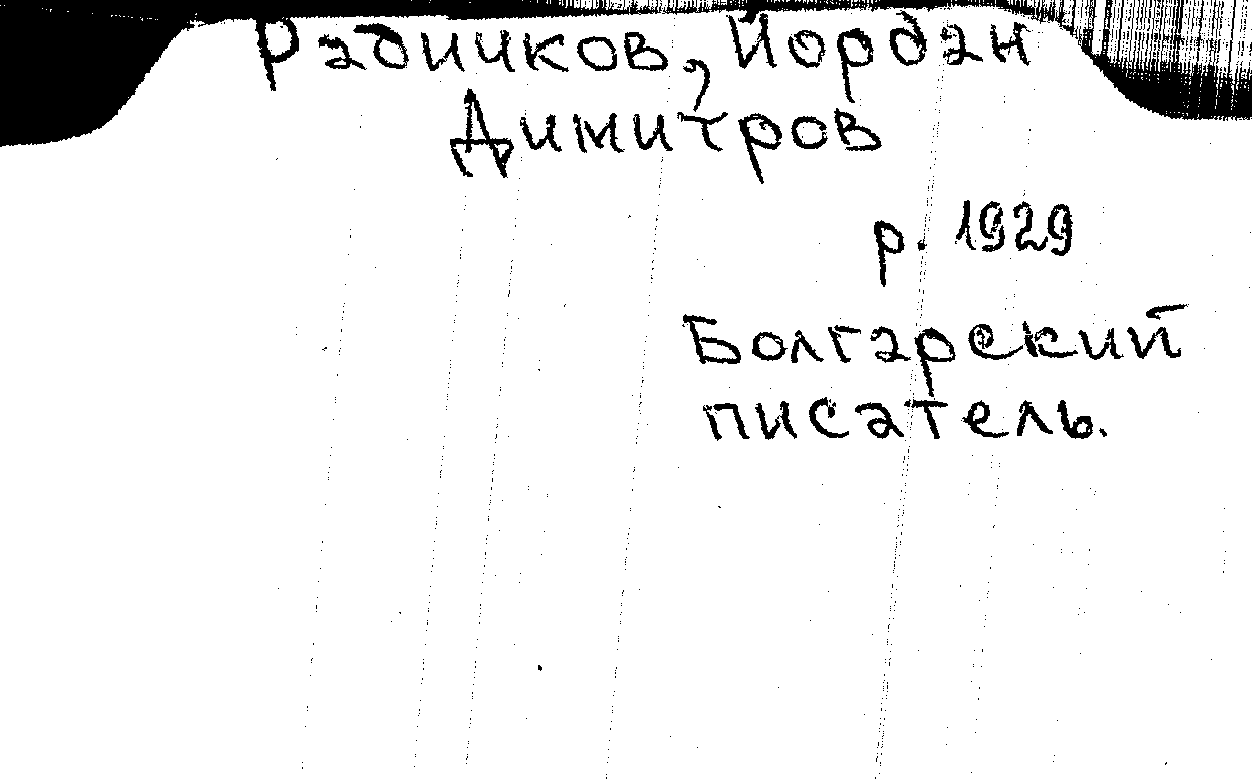 Радичков, Йордан
Димитров
р. 1929
Болгарский
писатель.